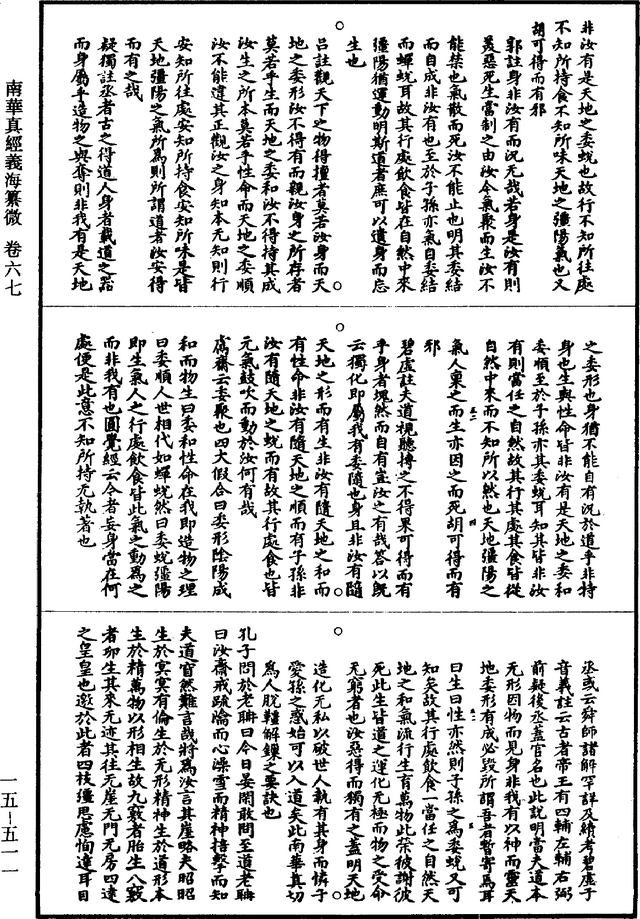 南華真經義海纂微 卷六七
非汝有是天地之委蛻也故行不知所往處
不知所持食不知所味天地之彊陽氣也又
胡可得而有邪
郭註身非汝有而況无哉若身是汝有則
美惡死生當制之由汝今氣聚而生汝不
能禁也氣散而死汝不能止也明其委結
而自成非汝有也至於子孫亦氣自委結
而蟬蛻耳故其行處飲食皆在自然中來
彊陽猶運動明斯道者庶可以遺身而忘
生也
呂註觀天下之物得擅者莫若汝身而天
地之委形汝不得有而觀汝身之所存者
莫若乎生而天地之委和汝不得持其成
汝生之所本莫若乎性命而天地之委順
汝不能違其正觀汝之身知本无知則行
安知所往處安知所持食安知所味是皆
天地彊陽之氣所為則所謂道者汝安得
而有之哉
疑獨註丞者古之得道人身者載道之器
而身屬乎造物之與奪則非我有是天地
之委形也身猶不能自有況於道乎非特
身也生與性命皆非汝有是天地之委和
委順至於子孫亦其委蛻耳知其皆非汝
有則當任之自然故其行其處其食皆從
自然中來而不知所以然也天地彊陽之
氣人稟之而生亦因之而死胡可得而有
邪
碧虛註夫道視聽摶之不得果可得而有
乎身者塊然而自有豈汝之有哉答以既
云獨化即屬我有委隨也身且非汝有隨
天地之形而有生非汝有隨天地之和而
有性命非汝有隨天地之順而有子孫非
汝有隨天地之蛻而有故其行處食也皆
元氣鼓吹而動於汝何有哉
鬳齋云委聚也四大假合曰委形陰陽成
和而物生曰委和性命在我即造物之理
曰委順人世相代如蟬蛻然曰委蛻彊陽
即生氣人之行處飲食皆此氣之動為之
而非我有也圓覺經云今者妄身當在何
處便是此意不知所持无執著也
丞或云舜師諸解罕詳及續考碧虛子
音義註云古者帝王有四輔左輔右弼
前疑後丞蓋官名也此說明當夫道本
无形因物而見身非我有以神而靈天
地委形有成必毀所謂吾者暫寄焉耳
曰生曰性亦然則子孫之為委蛻又可
知矣故其行處飲食一當任之自然天
地之和氣流行生育萬物此榮彼謝彼
死此生皆道之運化无極而物之受命
无窮者也汝惡得而獨有之蓋明天地
造化无私以破世人執有其身而憐子
愛孫之惑始可以入道矣此南華真切
為人脫韁解鏁之要訣也
孔子問於老聃曰今日晏閑敢問至道老聃
曰汝齋戒疏瀹而心澡雪而精神掊擊而知
夫道窅然難言哉將為汝言其崖略夫昭昭
生於冥冥有倫生於无形精神生於道形本
生於精萬物以形相生故九竅者胎生八竅
者卵生其來无迹其往无崖无門无房四達
之皇皇也邀於此者四枝彊思慮恂達耳目
一五—五一一